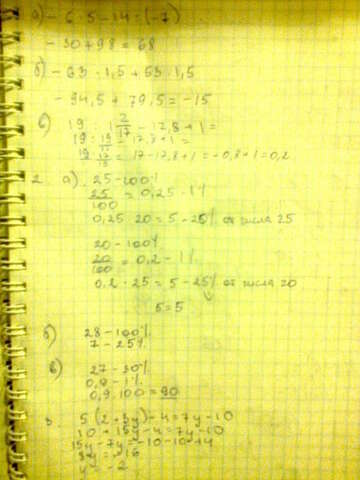 а) - 6 · 5 - 14 · (-7)
- 30 + 98 = 68
б) - 63 · 1,5 + 53 · 1,5
- 94,5 + 79,5 = - 15
в) 19 : 1 2/17 - 17,8 + 1 =
19 : 19/17 - 17,8 + 1 =
19 · 17/19 = 17 - 17,8 + 1 = - 0,8 + 1 = 0,2
2. а) 25 - 100%
25/100 = 0,25 - 1%
0,25 · 20 = 5 - 25% от числа 25
20 - 100%
20/100 = 0,2 - 1%
0,2 · 25 = 5 - 25% от числа 20
5 = 5
б) 28 - 100%
7 - 25%
в) 27 - 30%
0,9 - 1%
0,9 · 100 = 90
3. 5 (2 + 3y) - 4 = 7y - 10
10 + 15y - 4 = 7y - 10
15y - 7y = - 10 - 10 + 4
8y = - 16
y = - 2